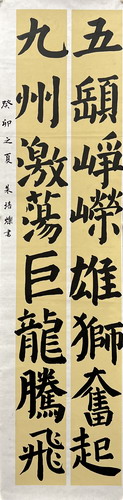 五嶽崢嶸雄獅奮起
九州激蕩巨龍騰飛
癸卯之夏 朱培爍書